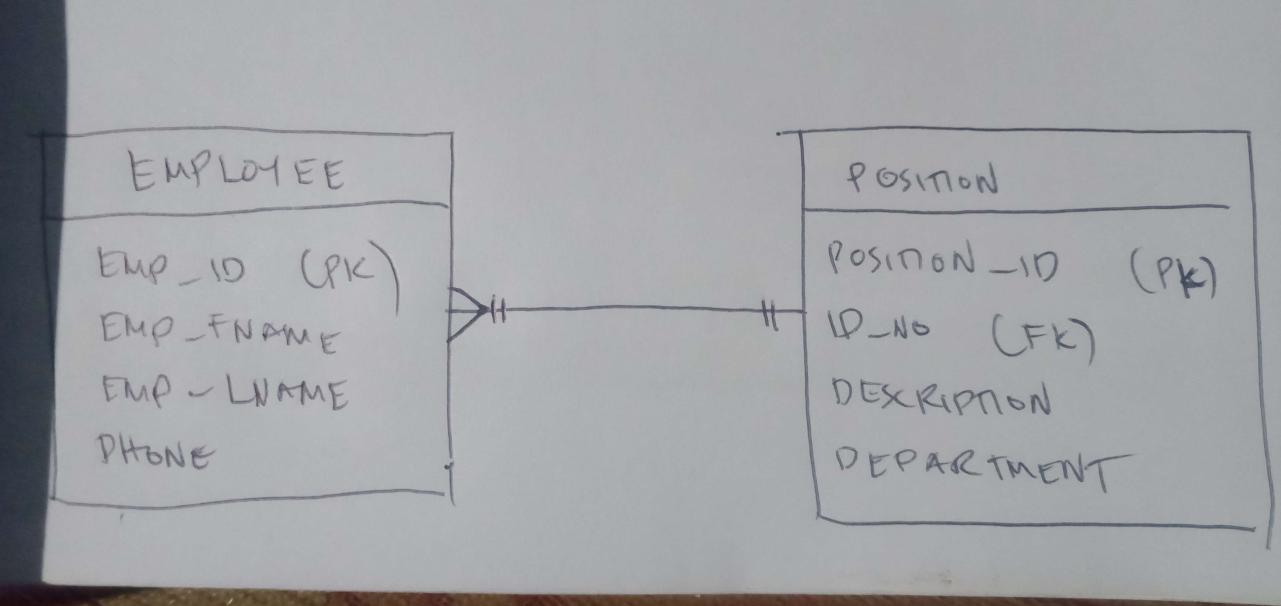 EMPLOYEE
EMP_ID (PK)
EMP_FNAME
EMP-LNAME
PHONE
POSITION
POSITION_ID (PK)
ID_NO (FK)
DESCRIPTION
DEPARTMENT